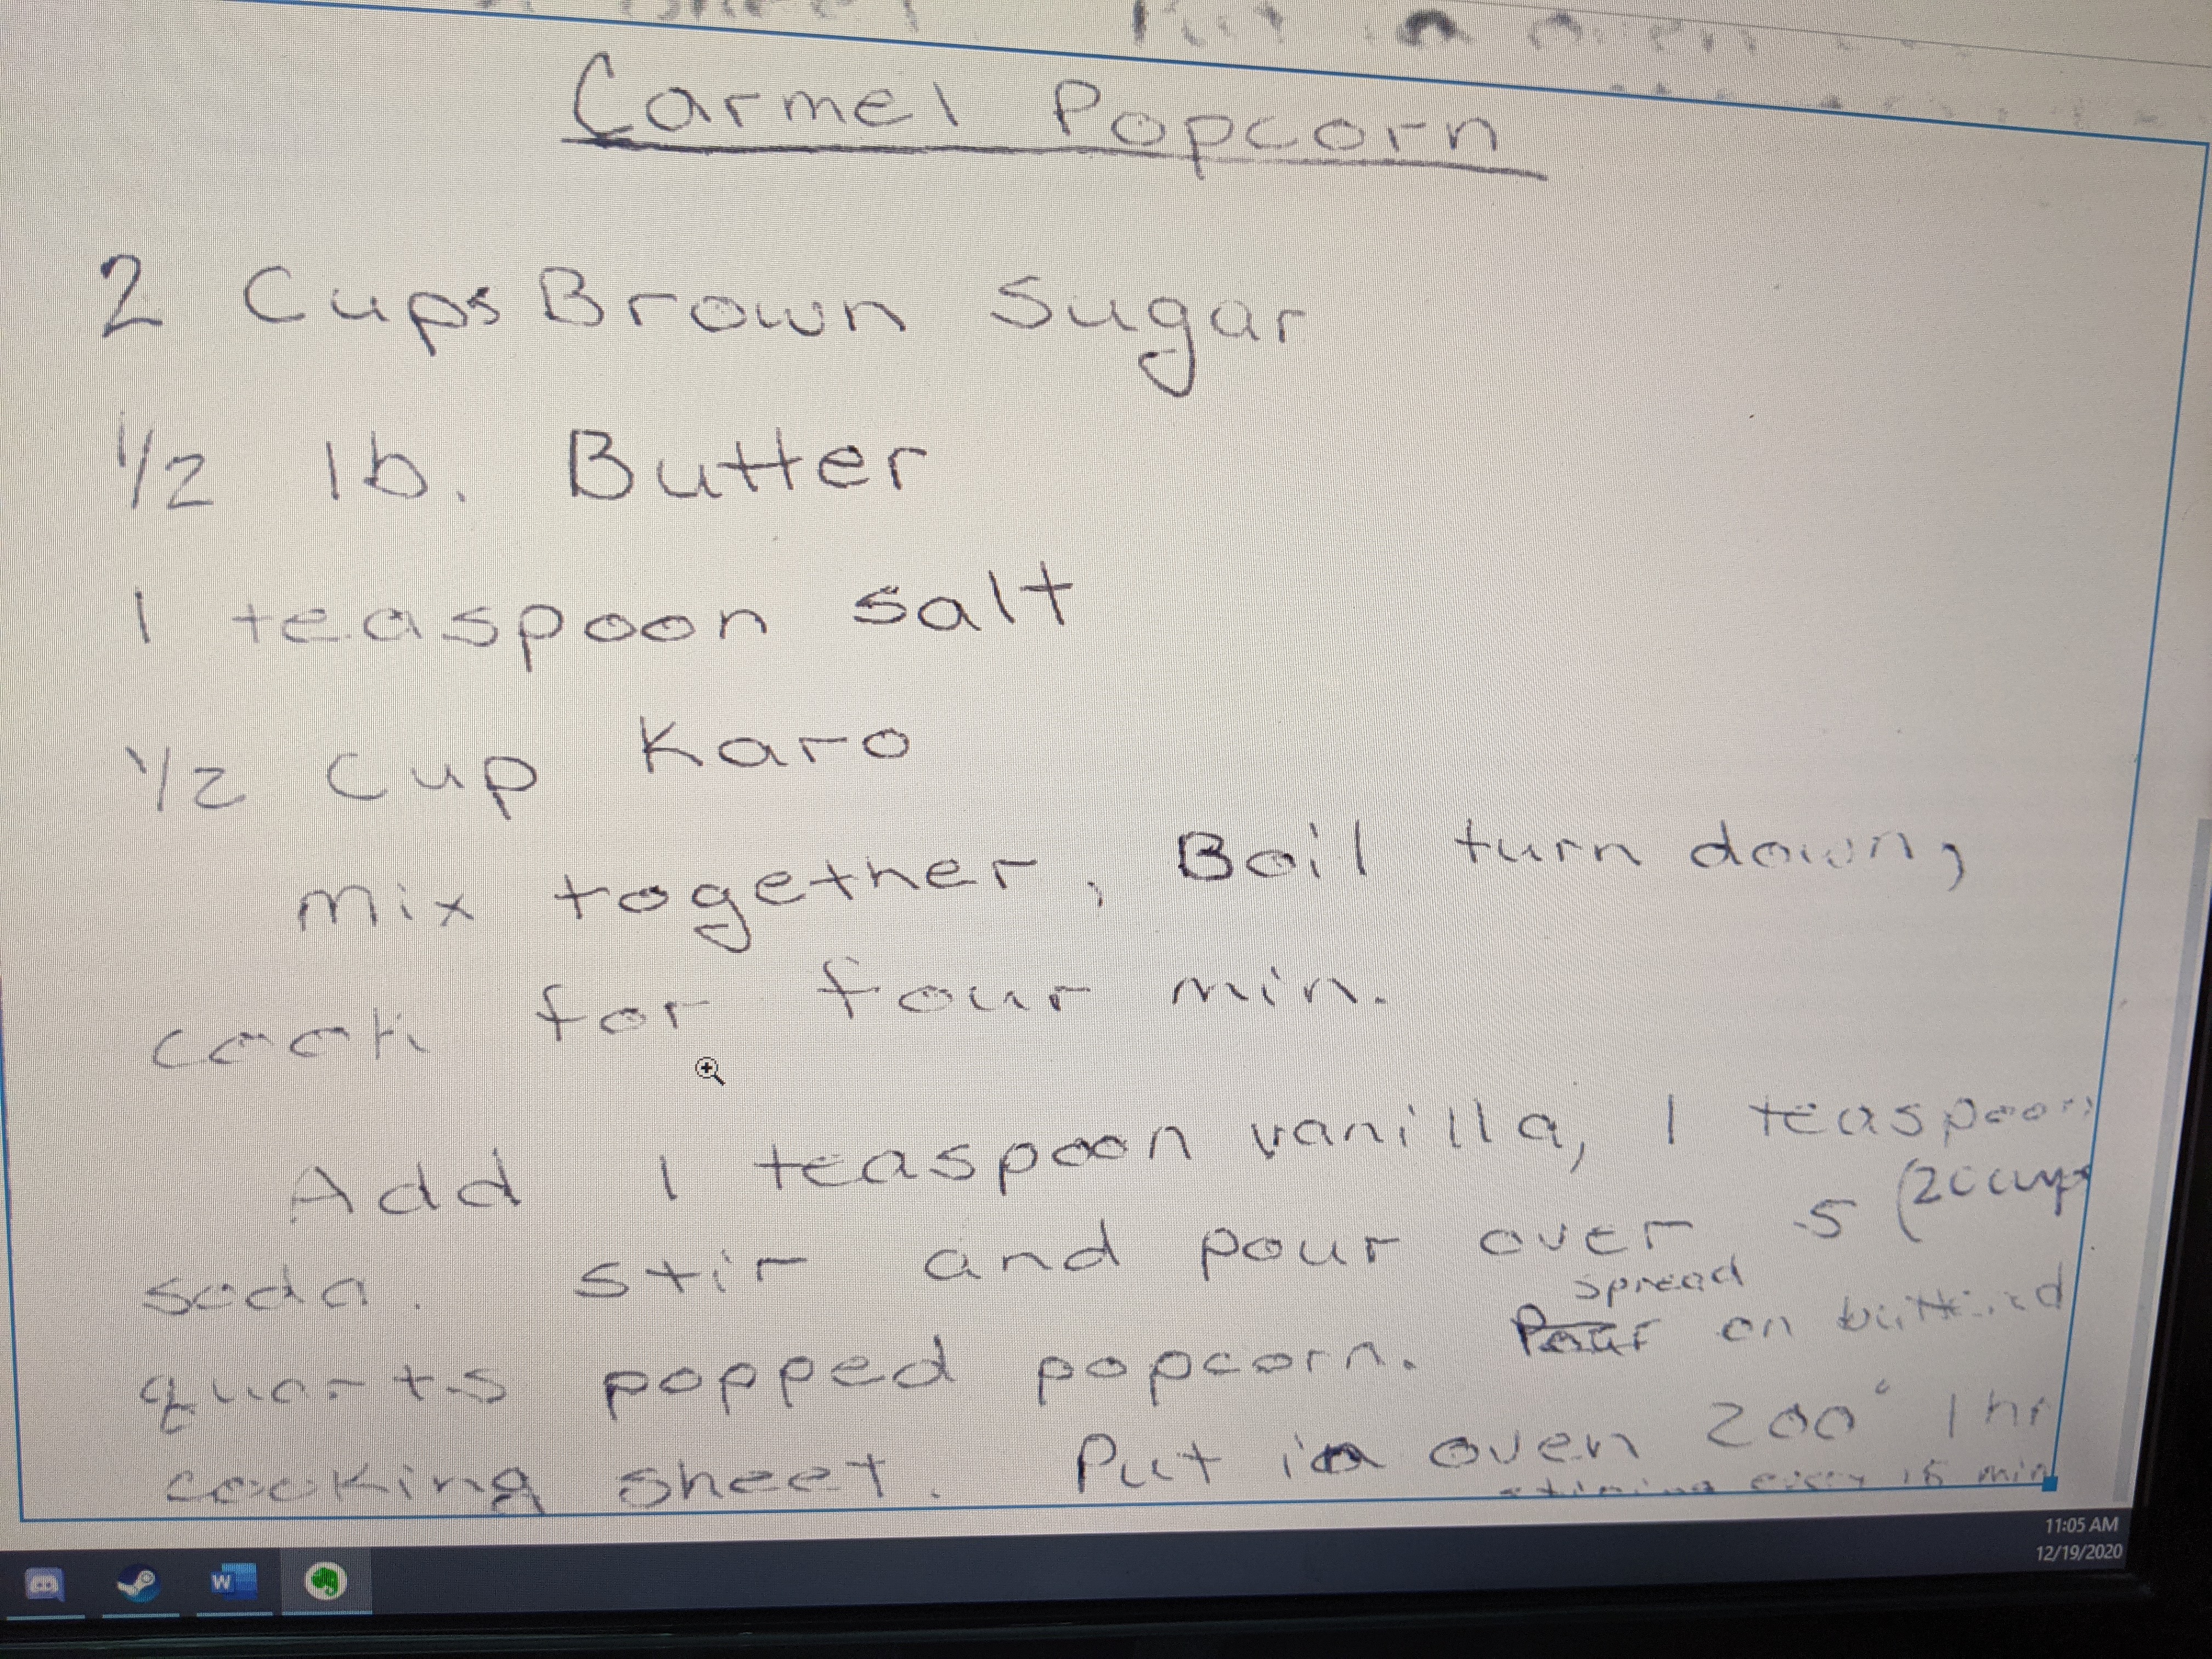 Carmel Popcorn
2 Cups Brown Sugar
1/2 lb. Butter
1 teaspoon salt
1/2 cup Karo
mix together, Boil turn down,
cook for four min.
Add 1 teaspoon vanilla, 1 teaspoon
soda. stir and pour over 5 (20 cups
spread
quarts popped popcorn. Pour on buttered
cooking sheet. Put in oven 200° 1 hr
stirring every 15 min
11:05 AM
12/19/2020
W